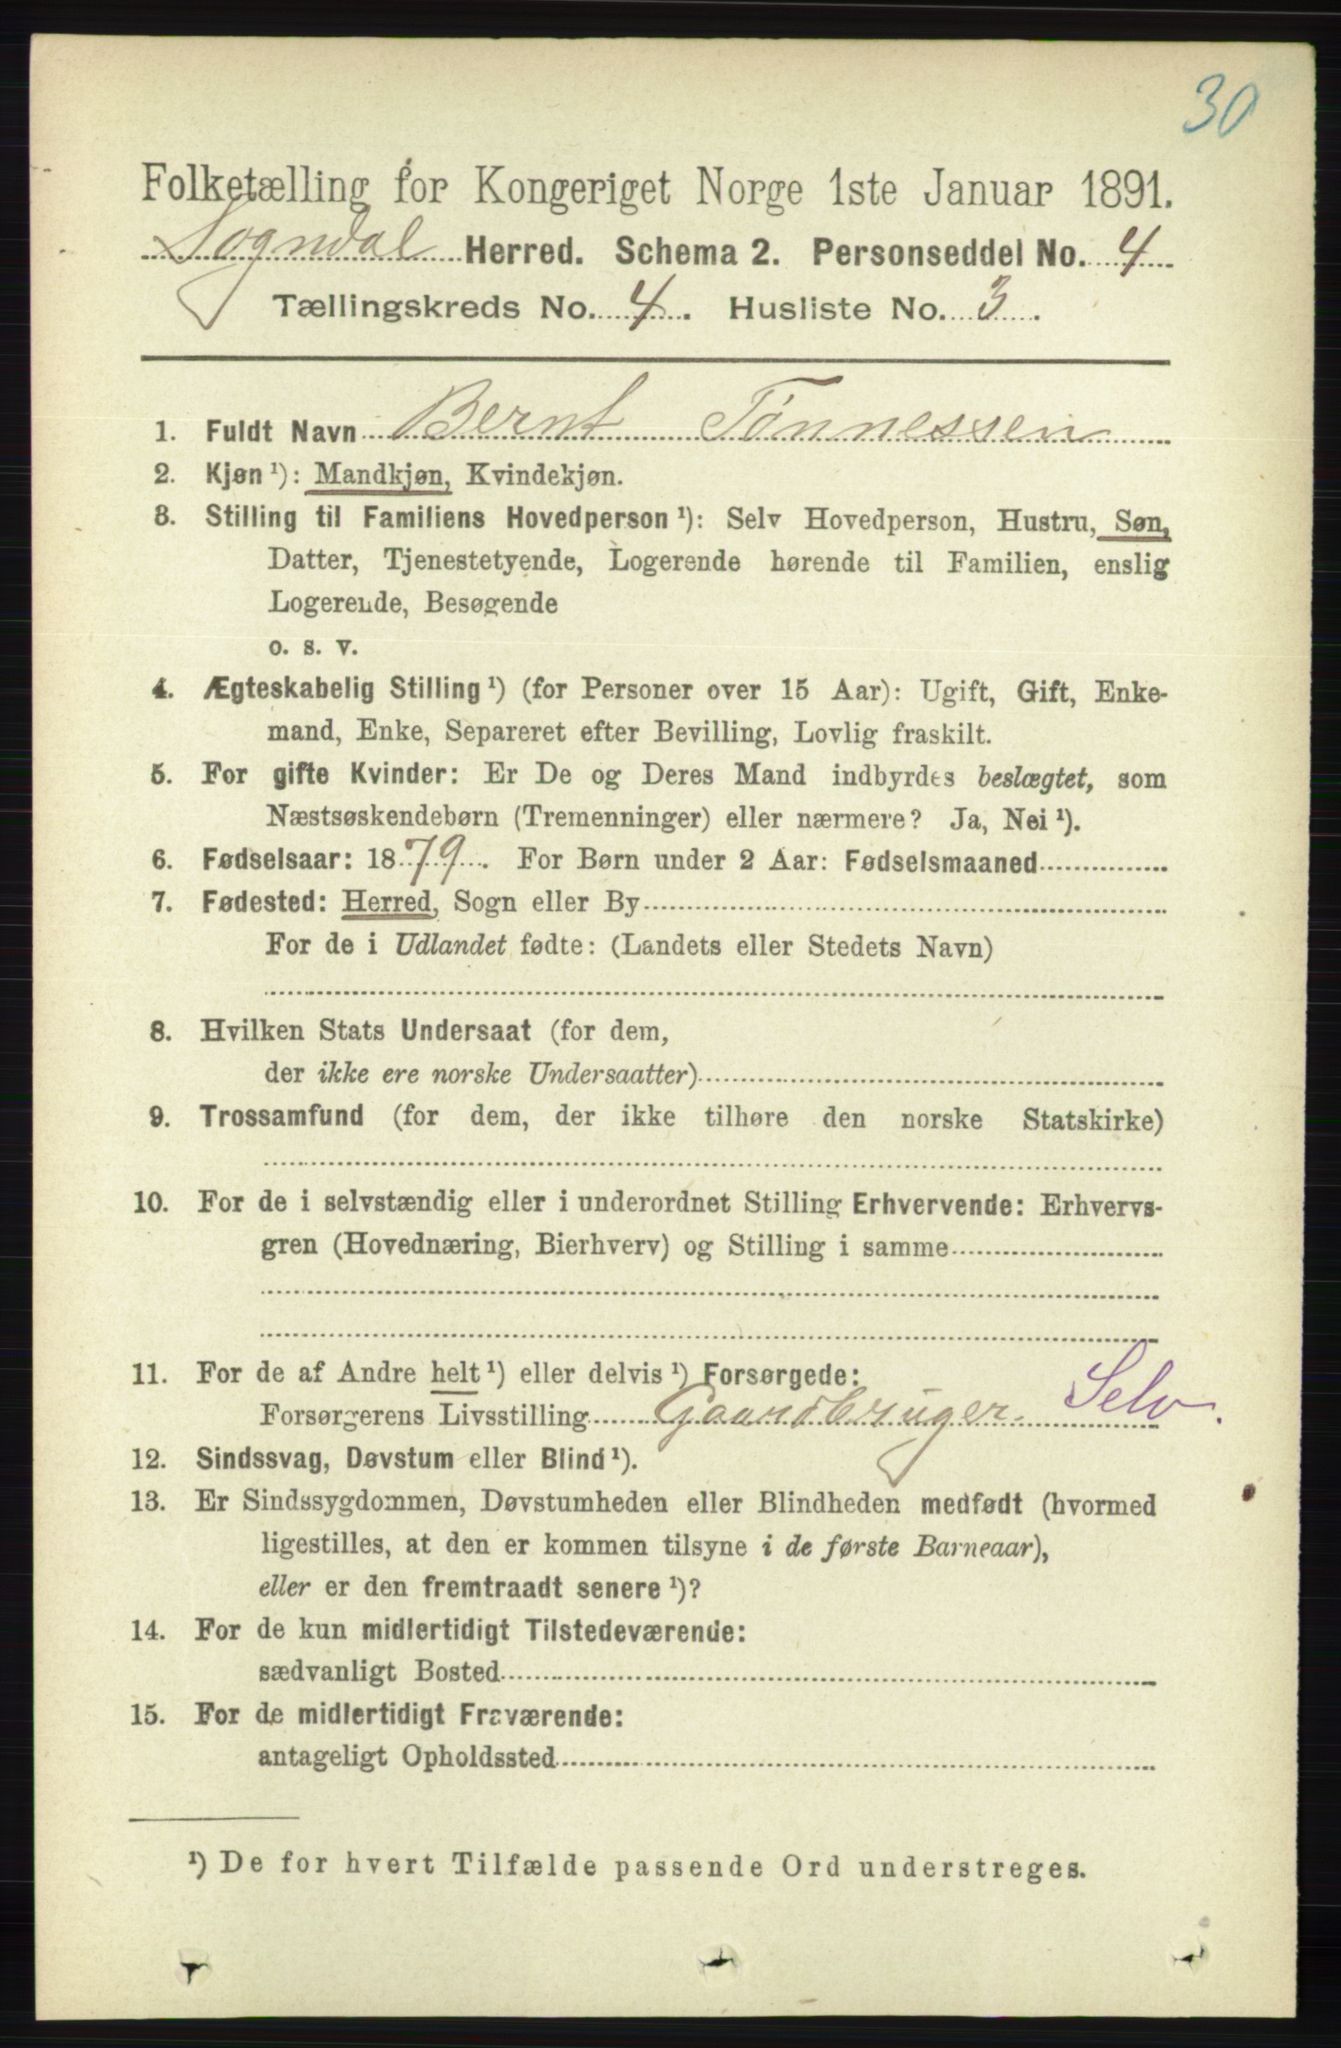 30
Folketælling for Kongeriget Norge 1ste Januar 1891.
Sogndal Herred. Schema 2. Personseddel No. 4
Tællingskreds No. 4. Husliste No. 3.
1. Fuldt Navn Bernt Tønnessen
2. Kjøn ¹): Mandkjøn, Kvindekjøn.
3. Stilling til Familiens Hovedperson ¹): Selv Hovedperson, Hustru, Søn,
Datter, Tjenestetyende, Logerende hørende til Familien, enslig
Logerende, Besøgende
o. s. v.
4. Ægteskabelig Stilling ¹) (for Personer over 15 Aar): Ugift, Gift, Enke-
mand, Enke, Separeret efter Bevilling, Lovlig fraskilt.
5. For gifte Kvinder: Er De og Deres Mand indbyrdes beslægtet, som
Næstsøskendebørn (Tremenninger) eller nærmere? Ja, Nei ¹).
6. Fødselsaar: 1879. For Børn under 2 Aar: Fødselsmaaned
7. Fødested: Herred, Sogn eller By
For de i Udlandet fødte: (Landets eller Stedets Navn)
8. Hvilken Stats Undersaat (for dem,
der ikke ere norske Undersaatter)
9. Trossamfund (for dem, der ikke tilhøre den norske Statskirke)
10. For de i selvstændig eller i underordnet Stilling Erhvervende: Erhvervs-
gren (Hovednæring, Bierhverv) og Stilling i samme
11. For de af Andre helt ¹) eller delvis ¹) Forsørgede:
Forsørgerens Livsstilling Gaardbruger. Selv.
12. Sindssvag, Døvstum eller Blind ¹).
13. Er Sindssygdommen, Døvstumheden eller Blindheden medfødt (hvormed
ligestilles, at den er kommen tilsyne i de første Barneaar),
eller er den fremtraadt senere ¹)?
14. For de kun midlertidigt Tilstedeværende:
sædvanligt Bosted
15. For de midlertidigt Fraværende:
antageligt Opholdssted
¹) De for hvert Tilfælde passende Ord understreges.